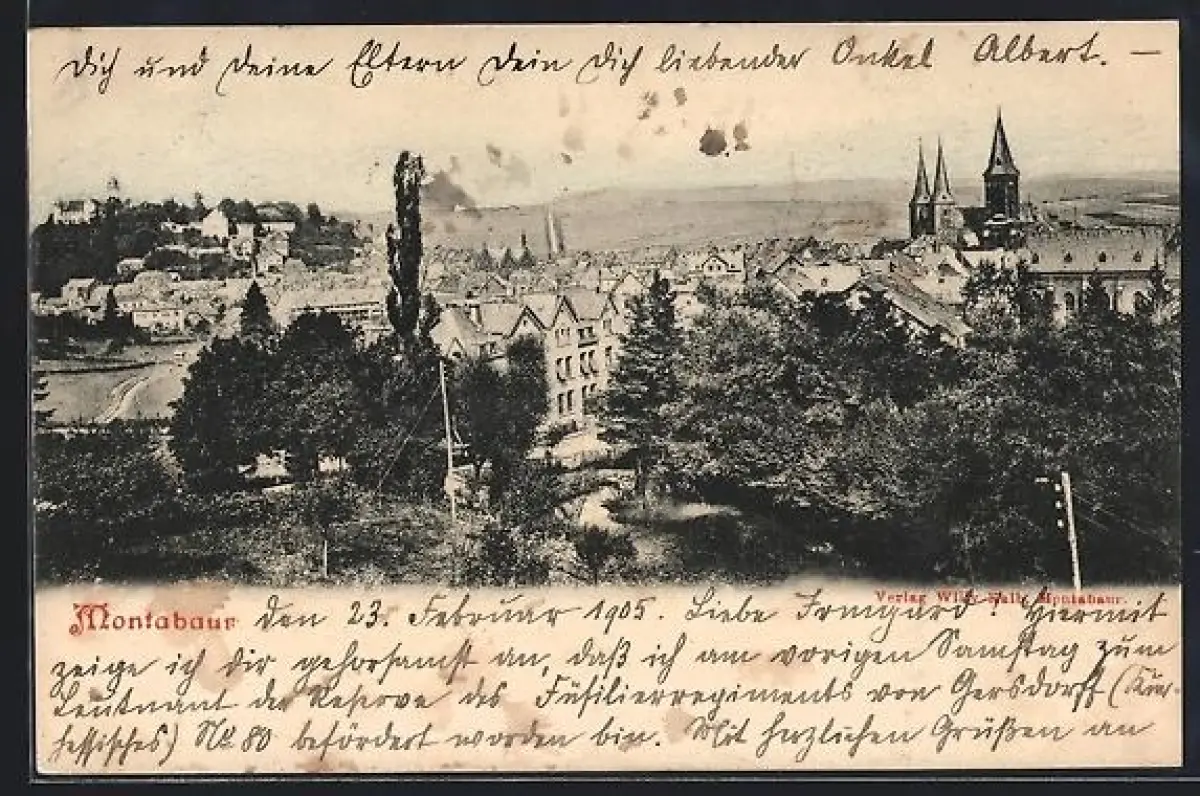 Dich und deine Eltern Dein Dich liebender Onkel Albert. —
Verlag Willy Kalb, Montabaur.
Montabaur den 23. Februar 1905. Liebe Irmgard! Hiermit
zeige ich dir gehorsamst an, daß ich am vorigen Samstag zum
Leutnant der Reserve des Füsilierregiments von Gersdorff (Kur-
hessisches) No. 80 befördert worden bin. Mit herzlichen Grüßen an